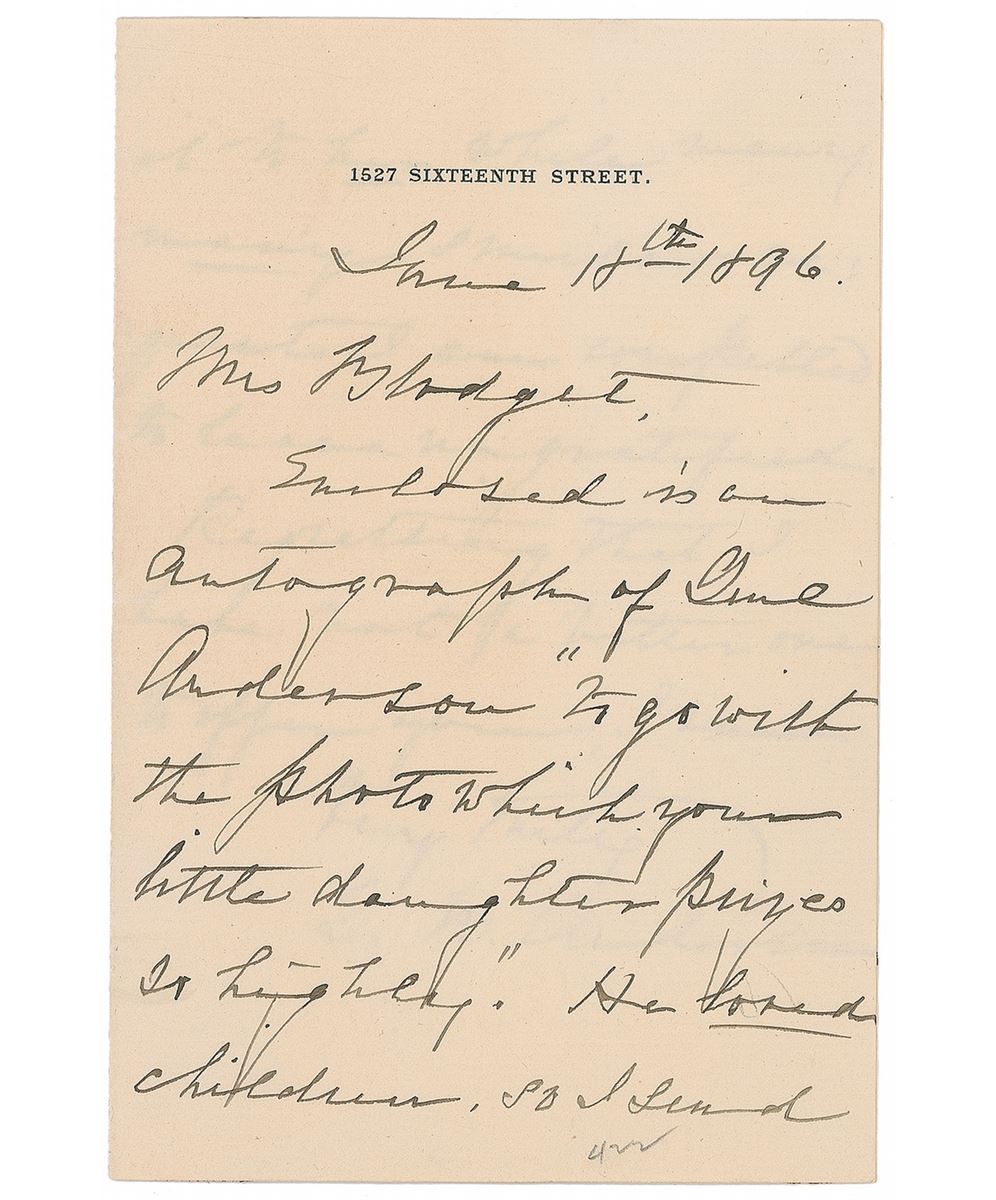 1527 SIXTEENTH STREET.
June 18th 1896.
Mrs Blodget,
Enclosed is an
autograph of Genl
Anderson "to go with
the photo which your
little daughter prizes
so highly." He loved
children, so I send